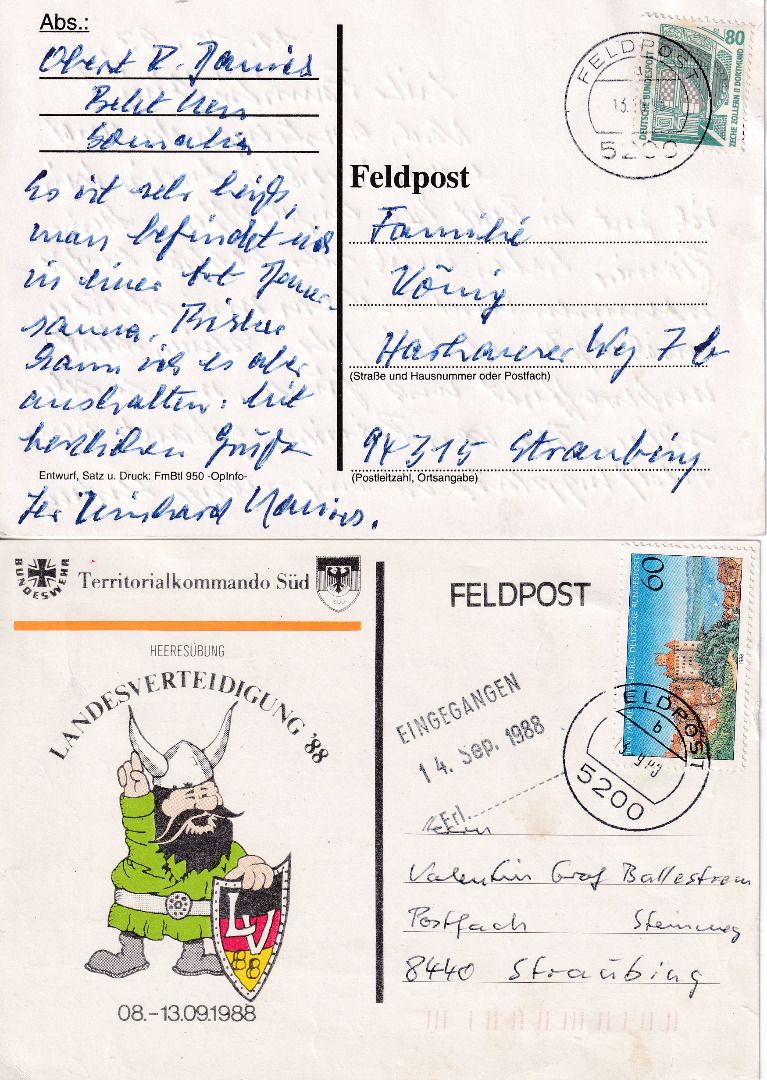 Abs.:
Oberst R.
Belet Uen
Somalia
Es ist sehr heiß,
man befindet sich
in einer Art Dauer-
sauna. Bisher
kann ich es aber
aushalten. Mit
herzlichen Grüßen
Entwurf, Satz u. Druck: FmBtl 950 -OpInfo-
Ihr Reinhard
FELDPOST
a
13.
5200
80
DEUTSCHE BUNDESPOST
ZECHE ZOLLERN II DORTMUND
Feldpost
Familie
König
Weg 7 b
(Straße und Hausnummer oder Postfach)
94315 Straubing
(Postleitzahl, Ortsangabe)
BUNDESWEHR
Territorialkommando Süd
HEERESÜBUNG
LANDESVERTEIDIGUNG '88
LV
88
08.-13.09.1988
FELDPOST
60
DEUTSCHE BUNDESPOST
EINGEGANGEN
14. Sep. 1988
Erl.
FELDPOST
b
5200
Herrn
Valentin Graf Ballestrem
Postfach Steinweg
8440 Straubing